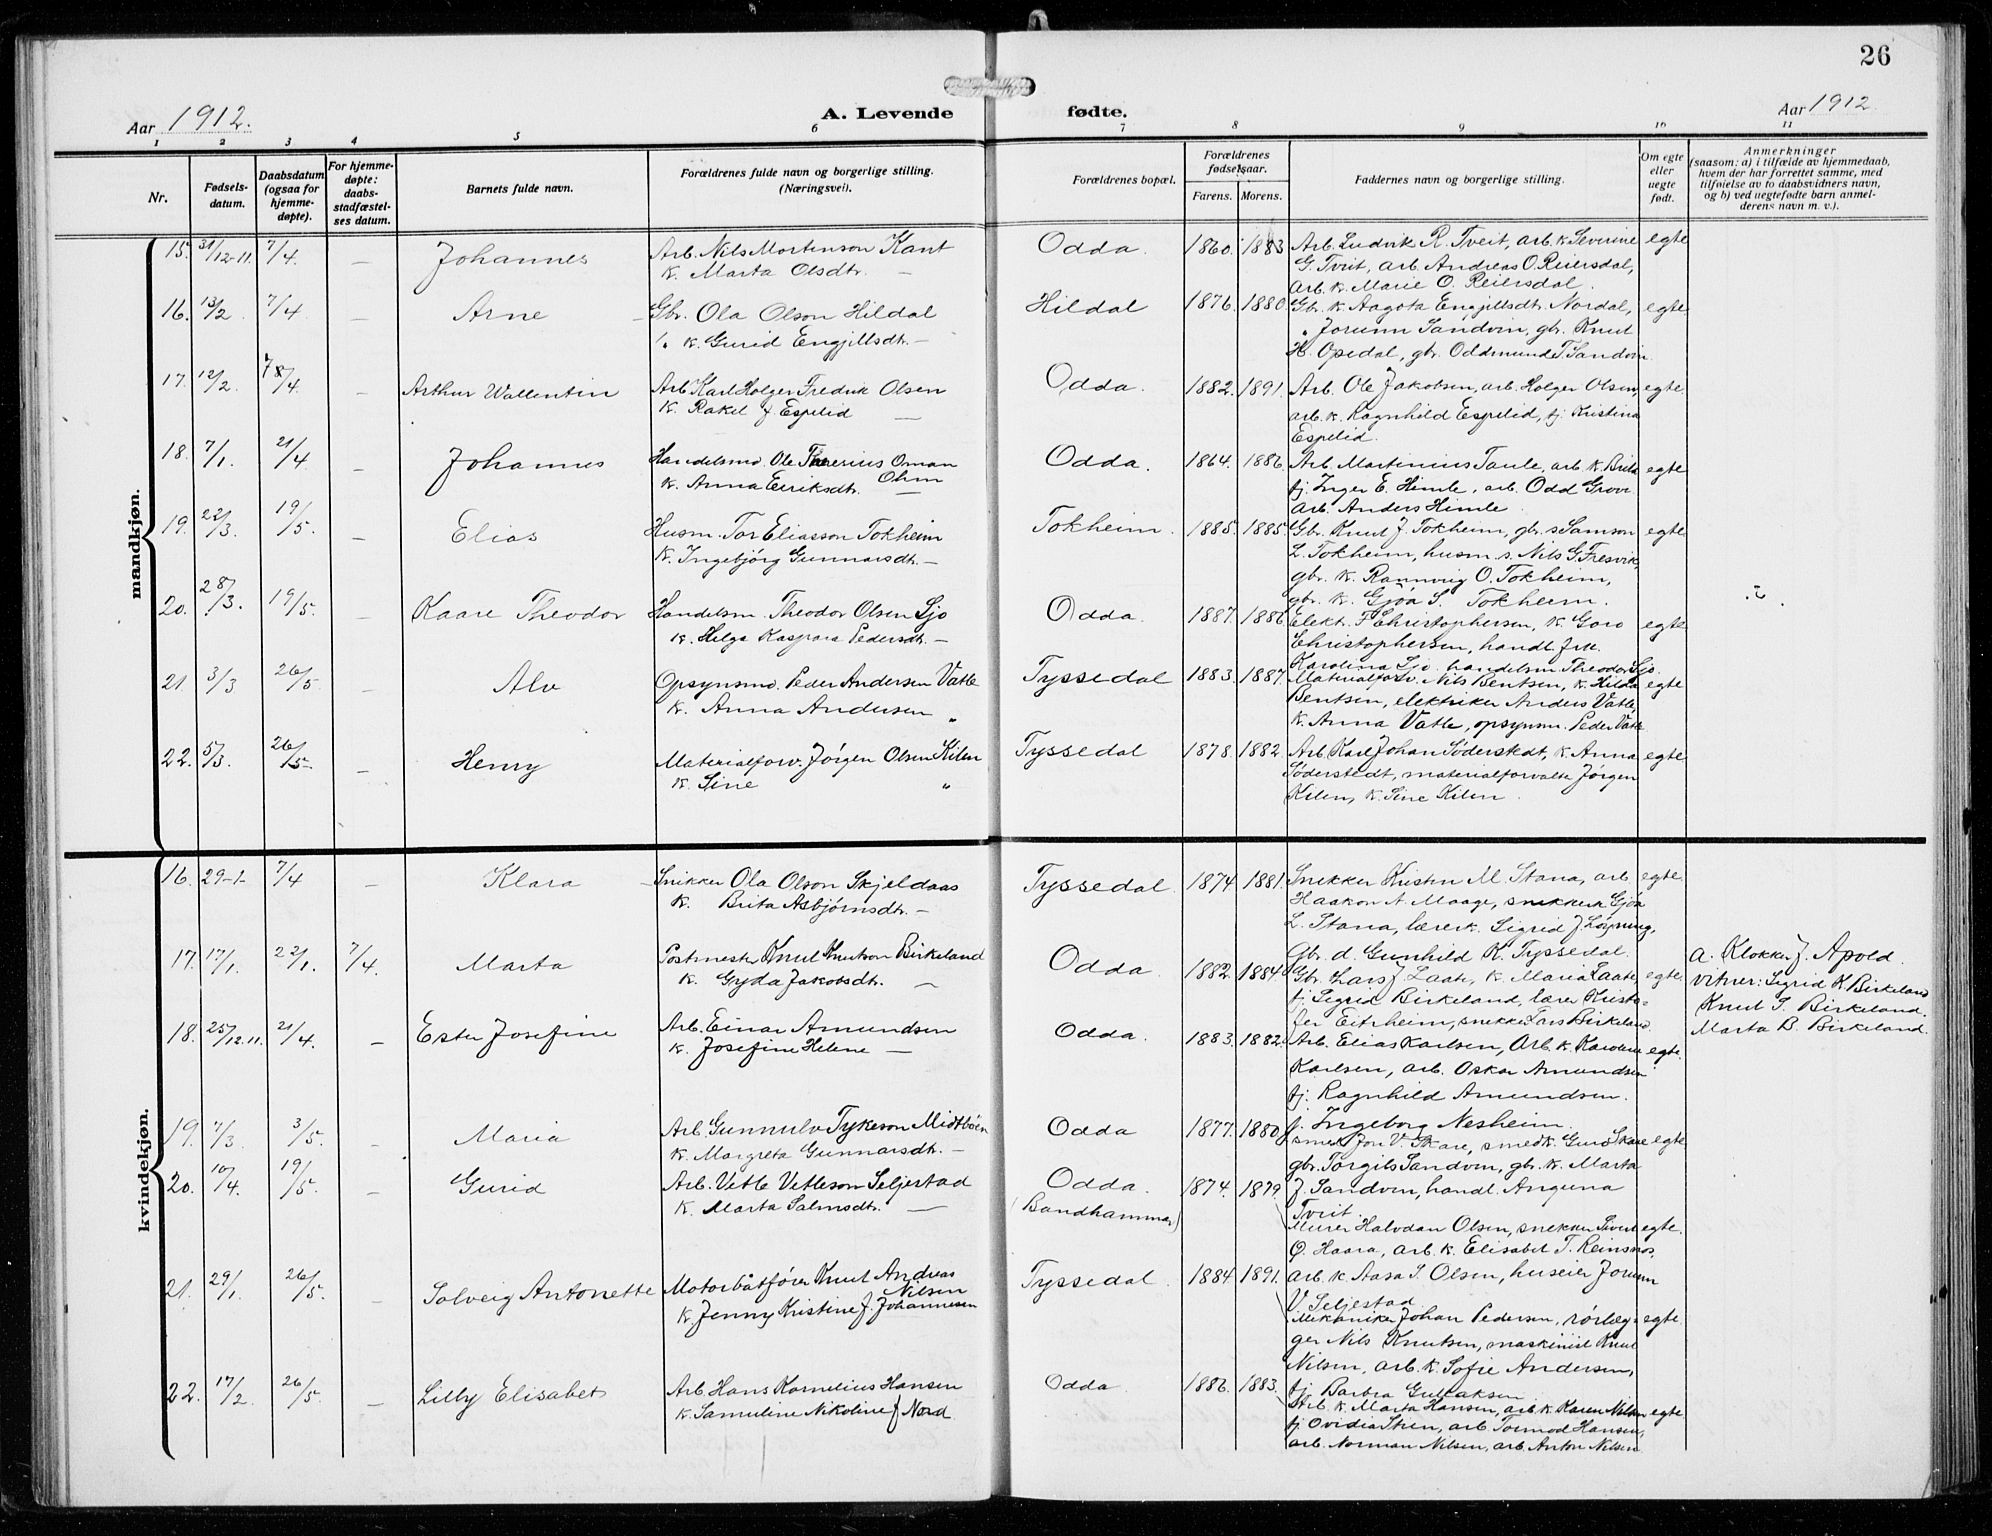 26
Aar 1912.
A. Levende fødte.
Aar 1912
1 2 3 4 5 6 7 8 9 10 11
Nr.
Fødsels-
datum.
Daabsdatum
(ogsaa for
hjemme-
døpte).
For hjemme-
døpte:
daabs-
stadfæstel-
ses datum.
Barnets fulde navn.
Forældrenes fulde navn og borgerlige stilling.
(Næringsvei).
Forældrenes bopæl.
Forældrenes
fødselsaar.
Farens. Morens.
Faddernes navn og borgerlige stilling.
Om egte
eller
uegte
født.
Anmerkninger
(saasom: a) i tilfælde av hjemmedaab,
hvem der har forrettet samme, med
tilføielse av to daabsvidners navn,
og b) ved uegtefødte barn anmel-
derens navn m. v.).
mandkjøn.
15. 31/12-11. 7/4. — Johannes Arb. Nils Mortenson Kant Odda. 1860. 1883 Arb. Ludvik R. Tveit, arb. k. Severine egte
k. Marta Olsdtr. — G. Tveit, arb. Andreas O. Reiersdal,
arb. k. Marie O. Reiersdal.
16. 13/2 7/4 — Arne Gbr. Ola Olson Hildal Hildal 1876. 1880. Gbr. k. Aagota Engjillsdtr. Nordal, egte
k. Gurid Engjillsdtr. — " Jorunn Sandvin, gbr. Knut
H. Opedal, gbr. Oddmund T. Sandvin.
17. 12/2 8/4. — Arthur Wallentin Arb. Karl Holger Fredrik Olsen Odda. 1882. 1891. Arb. Ole Jakobsen, arb. Holger Olsen, egte
k. Rakel f. Espelid — arb. k. Ragnhild Espelid, fj. Kristina
Espelid.
18. 7/1. 21/4 — Johannes Handelsm. Ole Oman Odda. 1864. 1886. Arb. Martinius Taule, arb. k. Brita egte
k. Anna Eeriksdtr. Ohm fj. Inger E. Himle, arb. Odd Grov.
arb. Anders Himle
19. 22/3 19/5. — Elias Husm. Tor Eliasson Tokheim Tokheim. 1885. 1885. Gbr. Knut J. Tokheim, gbr. s. Samson egte
k. Ingebjörg Gunnarsdtr. — L. Tokheim, husm. s. Nils G. Fresvik,
gbr. k. Rannveig O. Tokheim,
gbr. k. Gjöa S. Tokheim.
20. 28/3. 19/5. — Kaare Theodor Handelsm. Theodor Olsen Sjo Odda. 1887. 1886 Elekt. F. Christophersen, k. Goro egte
k. Helga Kaspara Pedersdtr. — Christophersen, handl. frk.
Karolina Sjo, handelsm. Theodor Sjo.
21. 3/3 26/5. — Alv Opsynsm. Peder Andersen Vatle Tyssedal 1883. 1887. Materialforv. Nils Bentsen, k. Hilda egte
k. Anna Andersen " Bentsen, elektriker Anders Vatle,
k. Anna Vatle, opsynsm. Peder Vatle
22. 5/3. 26/5 — Henry Materialforv. Jørgen Olsen Kilen Tyssedal 1878. 1882. Arb. Karl Johan Søderstedt, k. Anna egte
k. Sine " Søderstedt, materialforvalte Jørgen
Kilen, k. Sine Kilen.
kvindekjøn.
16. 29-1- 7/4 — Klara Snikker Ola Olson Skjeldaas Tyssedal. 1874. 1881. Snekker Kristen M. Stana, arb. egte
k. Brita Asbjörnsdtr. — Haakon A. Maage, snekker k. Gjöa
L. Stana, lærer k. Sigrid J. Löyning,
Gbr. d. Gunhild K. Tyssedal.
17. 17/1. 22/1. 7/4. Marta Postmester Knut Knutson Birkeland Odda. 1882. 1884. Gbr. Lars J. Laate, k. Maria Laate, egte. a. Klokker J. Apold.
k. Gyda Jakobsdtr. — fj. Sigrid Birkeland, lærer Kristo- vitner: Sigrid K. Birkeland
fer Eitrheim, snekker Lars Birkeland. Knut S. Birkeland.
Marta B. Birkeland.
18. 25/12.11. 21/4. — Ester Josefine Arb. Einar Amundsen Odda. 1883. 1882. Arb. Elias Karlsen, Arb. k. Karoline egte.
k. Josefine Helene — Karlsen, arb. Oskar Amundsen
fj. Ragnhild Amundsen.
f. Ingeborg Nesheim.
19. 7/3. 3/5. — Maria Arb. Gunnulv Tykeson Midtböen Odda 1877. 1880. smed Jon V. Skare, smed k. Guro Skare egte.
k. Margreta Gunnarsdtr. — gbr. Torgils Sandven, gbr. k. Marta
J. Sandven, handl. Anguna
Tveit.
20. 10/4. 19/5. — Gurid Arb. Vetle Vetleson Seljestad Odda. 1874. 1879. Murer Halvdan Olsen, snekker Sivert egte.
k. Marta Salmsdtr. — (Bandhammar) O. Haara, arb. k. Elisabet T. Reinsnos,
arb. k. Aasa S. Olsen, huseier Jorunn
V. Seljestad
21. 29/1. 26/5. — Solveig Antonette Motorbåtfører Knut Andreas Nilsen Tyssedal. 1884. 1891. Mekaniker Johan Pedersen, rörlæg- egte.
k. Jenny Kristine f. Johannesen ger Nils Knutsen, maskinist Knut
Nilsen, arb. k. Sofie Andersen,
fj. Barbra Gullaksen
22. 17/2. 26/5. — Lilly Elisabet Arb. Hans Kornelius Hansen Odda. 1886. 1883. Arb. k. Marta Hansen, arb. k. Karen Nilsen egte.
k. Samuline Nikoline f. Nord. fj. Ovidia Steen, arb. Tormod Hansen,
arb. Norman Nilsen, arb. Anton Nilsen